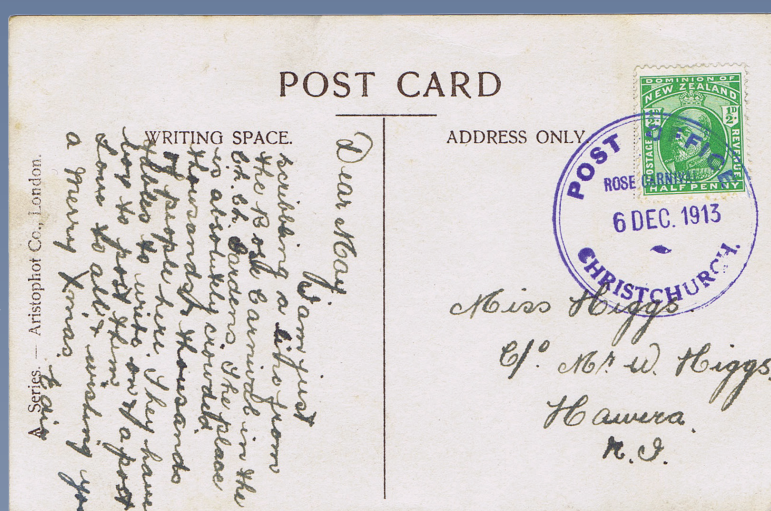 POST CARD
WRITING SPACE.
ADDRESS ONLY
DOMINION OF
NEW ZEALAND
POSTAGE
REVENUE
½D
HALF PENNY
POST OFFICE
ROSE CARNIVAL
6 DEC. 1913
CHRISTCHURCH.
Dear May
I am just
scribbing a line from
the Rose Carnival in the
Ch. Ch. Gardens. The place
is absolutely crowded
thousands & thousands
of people here. They have
tables to write on & a post
box to post them
Love to all & wishing you
a Merry Xmas
Miss Higgs.
C/o Mr. W. Higgs
Hawera.
N.I.
A. Series. — Aristophot Co., London.